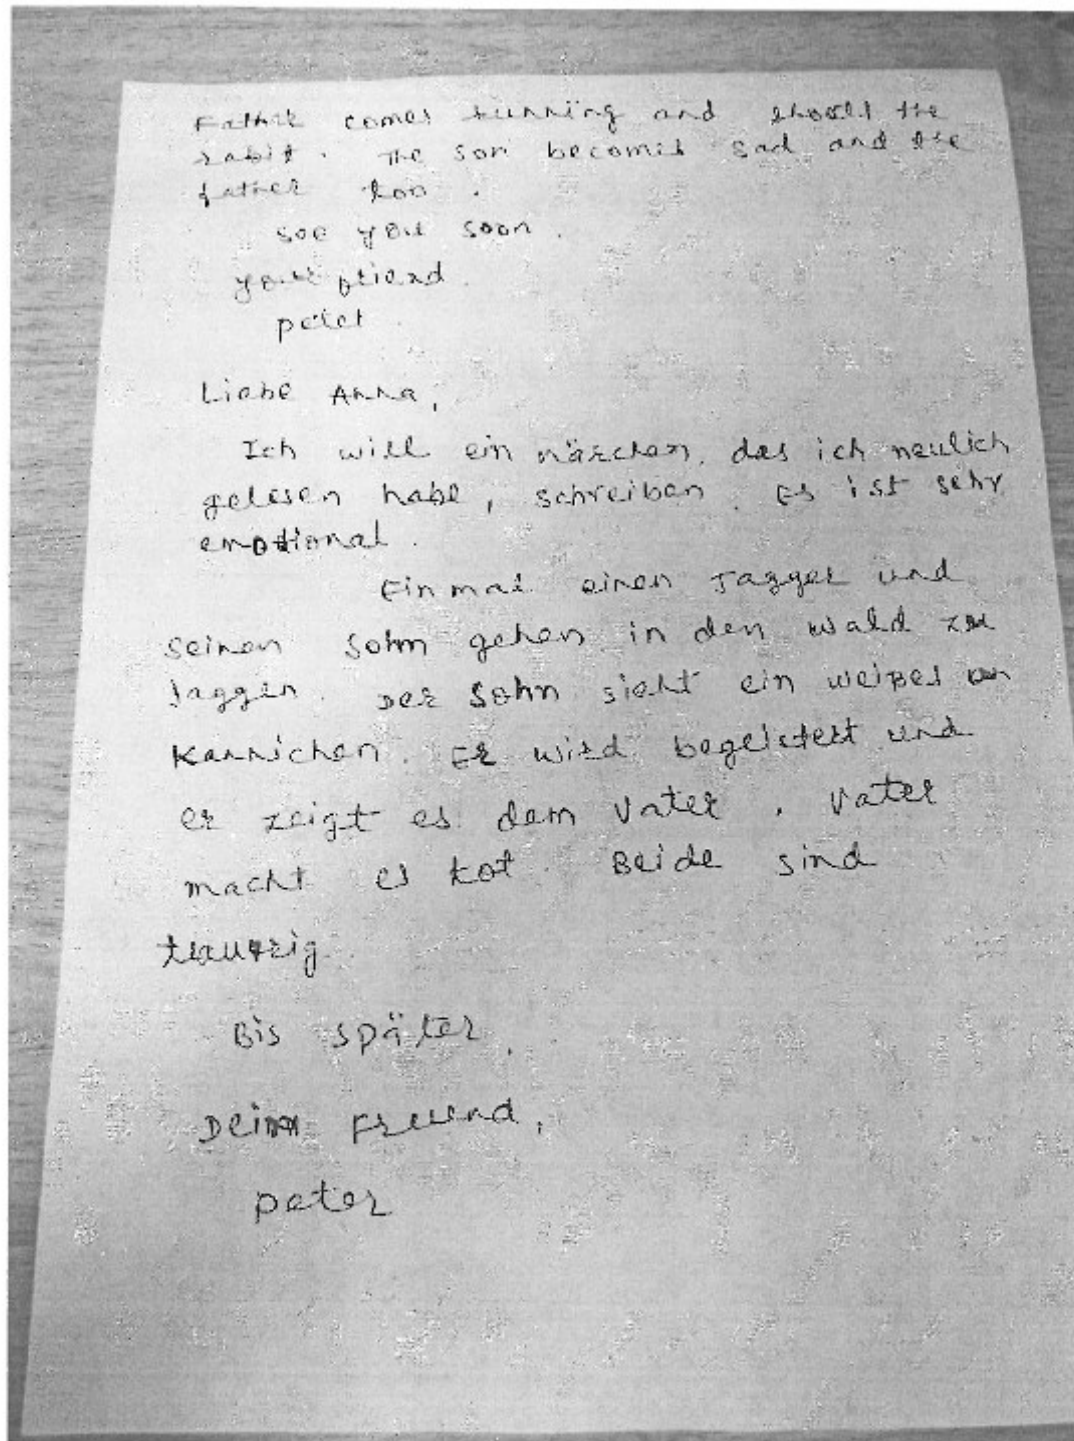 Father comes running and shoots the
rabit. The son becomes sad and the
father too.
see you soon.
your friend.
peter.
Liebe Anna,
Ich will ein närchen, das ich neulich
gelesen habe, schreiben. Es ist sehr
emotional.
Einmal einen Jagger und
seinen Sohn gehen in den wald zu
Jaggen. Der Sohn sieht ein weißes
Kannichen. Er wird begeistert und
er zeigt es dem Vater. Vater
macht es tot. Beide sind
traurig.
Bis später,
Dein Freund,
peter